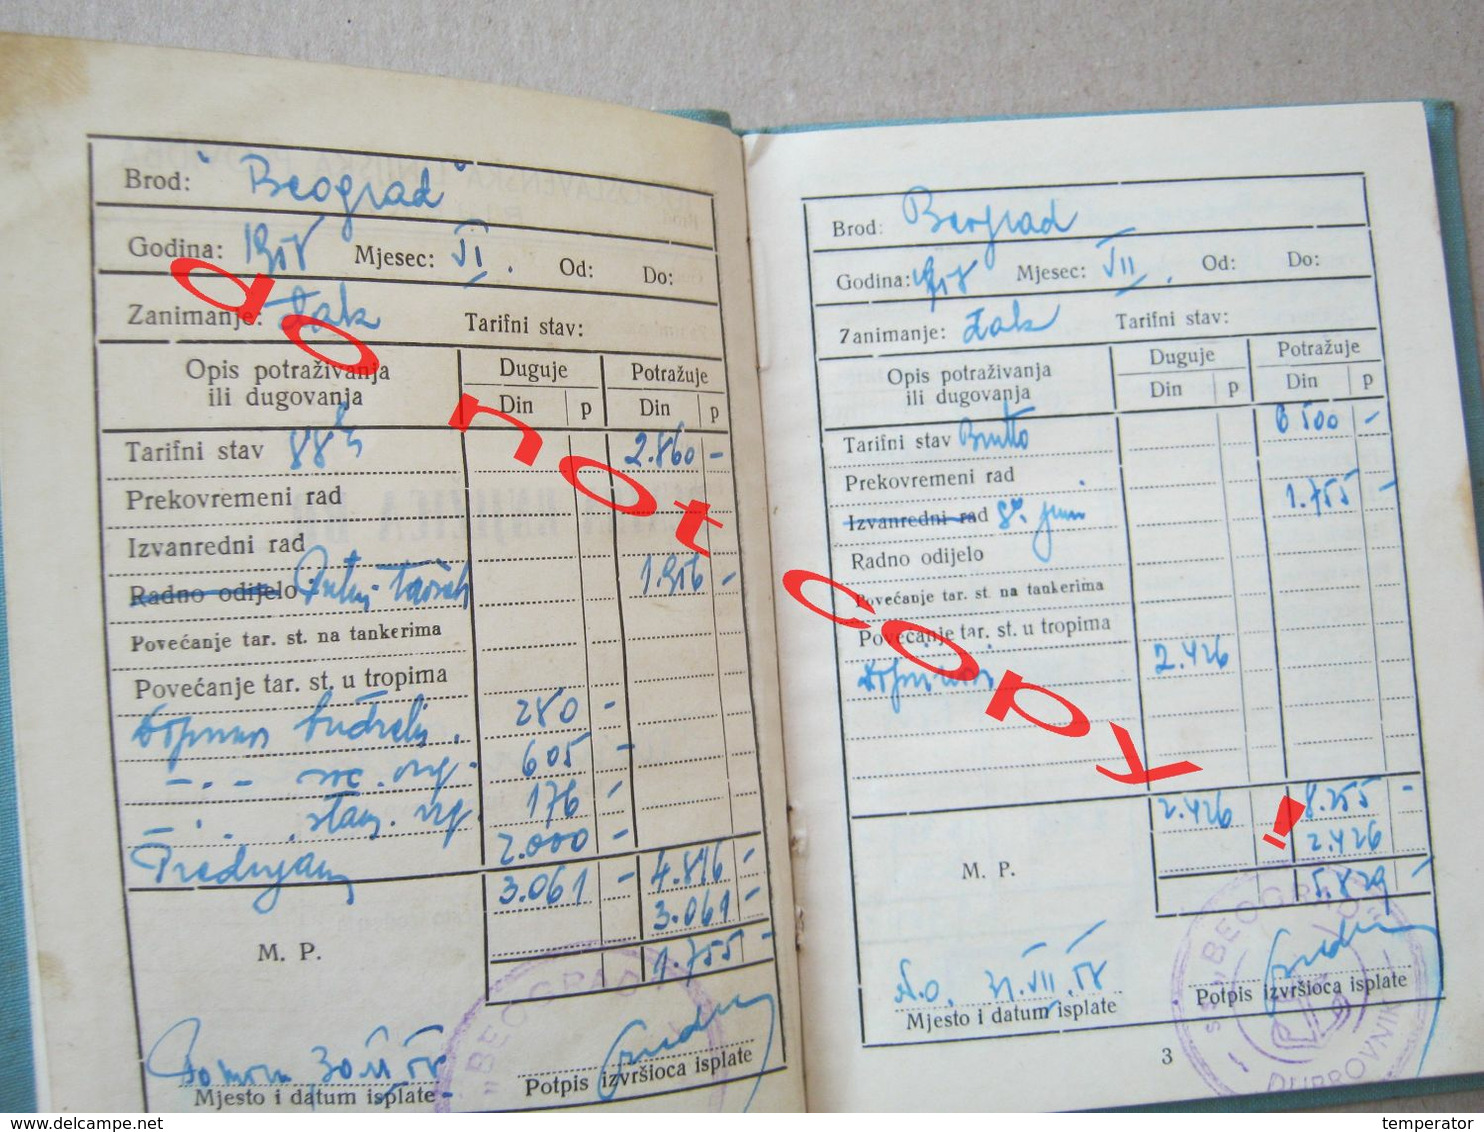 Brod: „Beograd"
Godina: 1958 Mjesec: VI. Od: Do:
Zanimanje: Đak Tarifni stav:
Opis potraživanja ili dugovanja Duguje Potražuje
Din p Din p
Tarifni stav 2.860 -
Prekovremeni rad
Izvanredni rad
Radno odijelo 1.956 -
Povećanje tar. st. na tankerima
Povećanje tar. st. u tropima
Doprinos 280 -
605 -
176 -
Predujam 2.000 -
3.061 - 4.816 -
3.061 -
M. P.
1.755 -
"BEOGRAD"
Mjesto i datum isplate
Potpis izvršioca isplate
Brod: Beograd
Godina: 1958 Mjesec: VII. Od: Do:
Zanimanje: Đak Tarifni stav:
Opis potraživanja ili dugovanja Duguje Potražuje
Din p Din p
Tarifni stav Brutto 6500 -
Prekovremeni rad
Izvanredni rad juni 1.755 -
Radno odijelo
Povećanje tar. st. na tankerima
Povećanje tar. st. u tropima
Doprinosi 2.426
2.426 8.255 -
2.426
M. P. 5.829 -
"BEOGRAD"
DUBROVNIK
31.VII.58
Mjesto i datum isplate
Potpis izvršioca isplate
3
do not copy!
www.delcampe.net
temperator